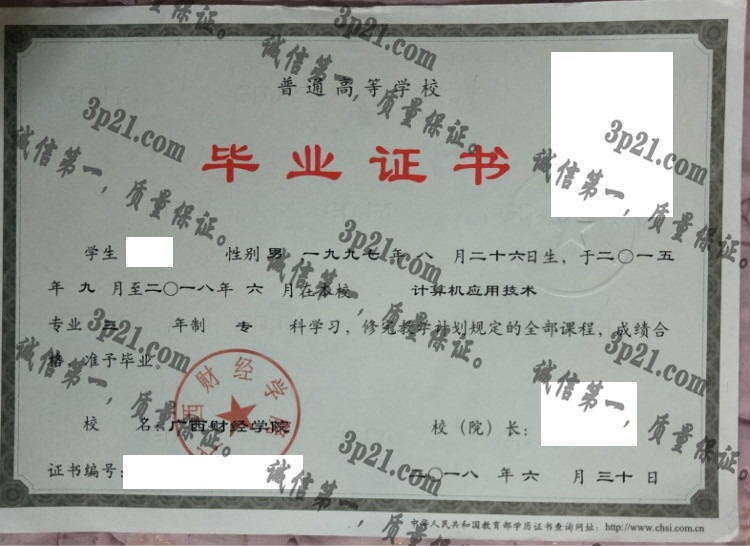 普通高等学校
毕业证书
学生 性别 男 一九九七 年 八 月二十六日生，于二〇一五
年 九 月至二〇一八年 六 月在本校 计算机应用技术
专业 三 年制 专 科学习，修完教学计划规定的全部课程，成绩合
格，准予毕业。
校 名：广西财经学院 校（院）长：
证书编号： 二〇一八 年 六 月 三十 日
中华人民共和国教育部学历证书查询网址：http://www.chsi.com.cn
广西财经学院
3p21.com
诚信第一，质量保证。
3p21.com
诚信第一，质量保证。
3p21.com
诚信第一，质量保证。
3p21.com
诚信第一，质量保证。
3p21.com
诚信第一，质量保证。
3p21.com
诚信第一，质量保证。
3p21.com
诚信第一，质量保证。
3p21.com
诚信第一，质量保证。